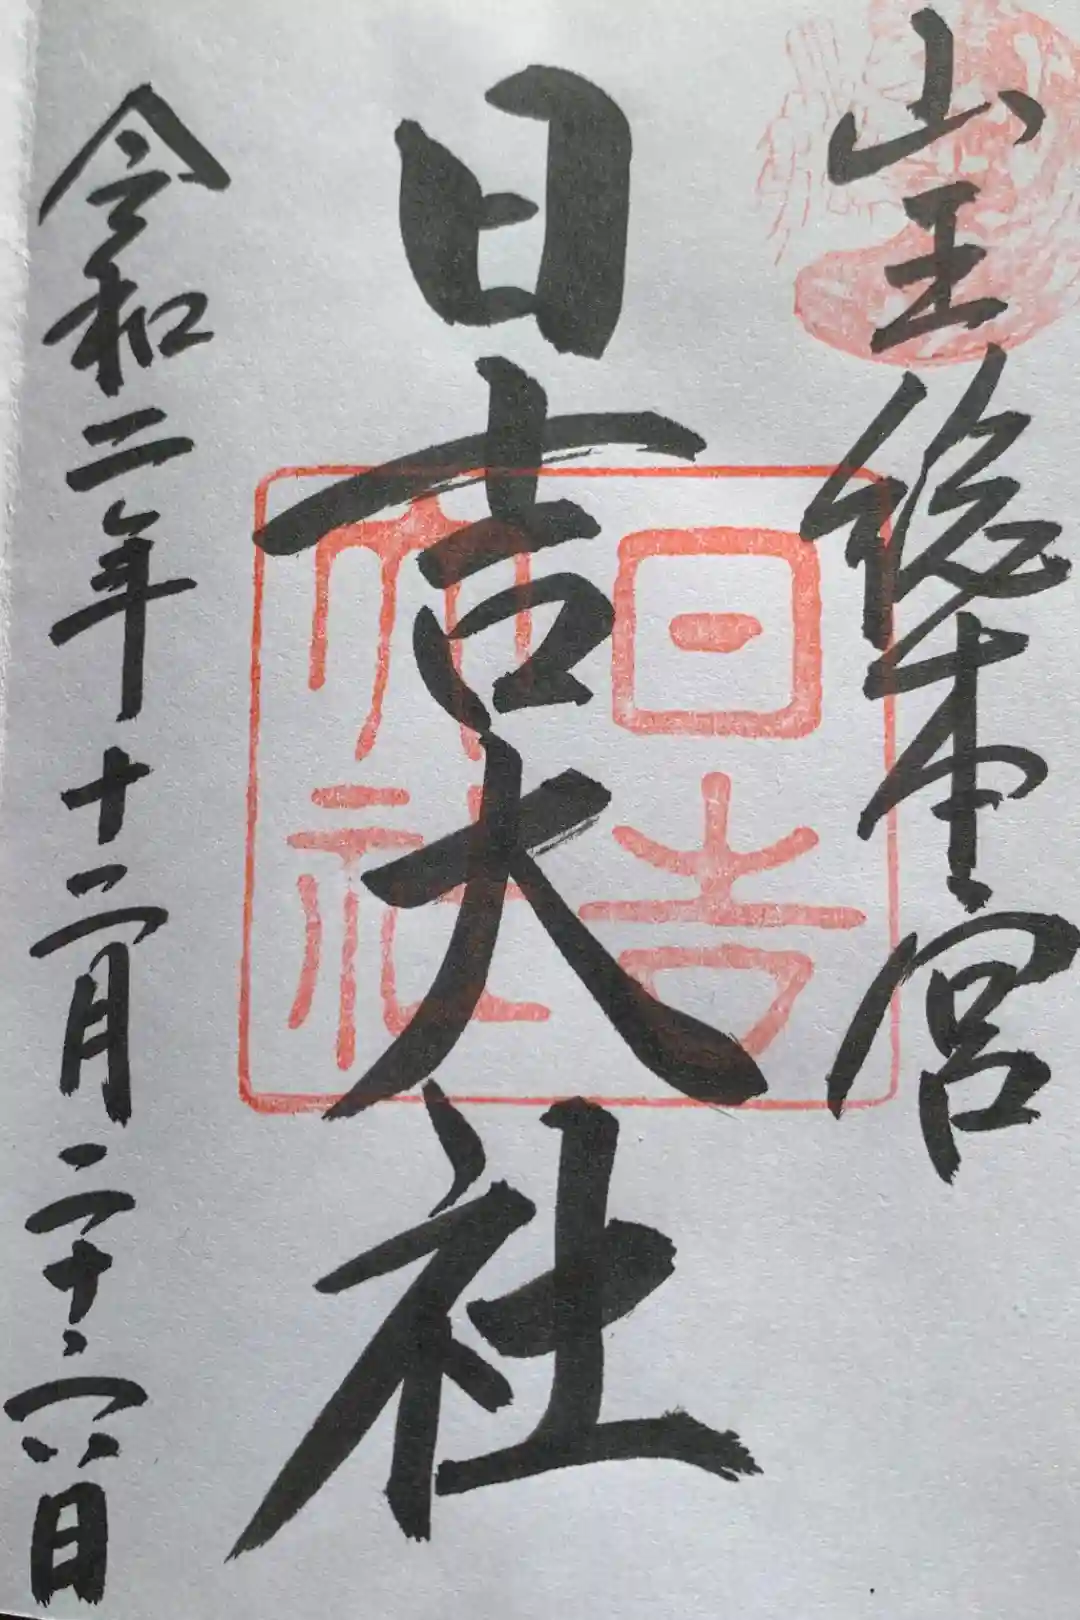 山王総本宮
日吉大社
日吉大社
令和二年十二月二十六日